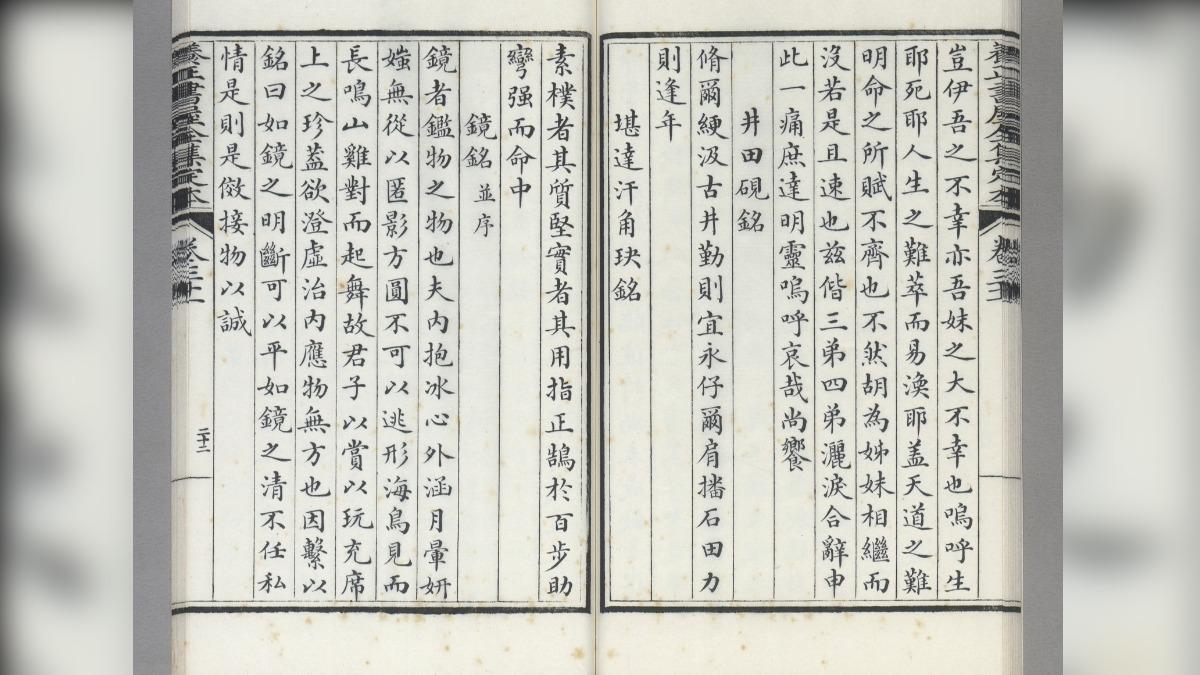 豈伊吾之不幸亦吾妹之大不幸也嗚呼生
耶死耶人生之難萃而易渙耶盖天道之難
明命之所賦不齊也不然胡為姊妹相繼而
沒若是且速也茲偕三弟四弟灑淚合辭申
此一痛庶達明靈嗚呼哀哉尚饗
井田硯銘
脩爾綆汲古井勤則宜永仔爾肩播石田力
則逢年
堪達汗角玦銘
素樸者其質堅實者其用指正鵠於百步助
彎强而命中
鏡銘並序
鏡者鑑物之物也夫內抱冰心外涵月暈妍
媸無從以匿影方圓不可以逃形海鳥見而
長鳴山雞對而起舞故君子以賞以玩充席
上之珍葢欲澄虛治內應物無方也因繫以
銘曰如鏡之明斷可以平如鏡之清不任私
情是則是傚接物以誠
養正書屋全集定本
卷三十
二十二